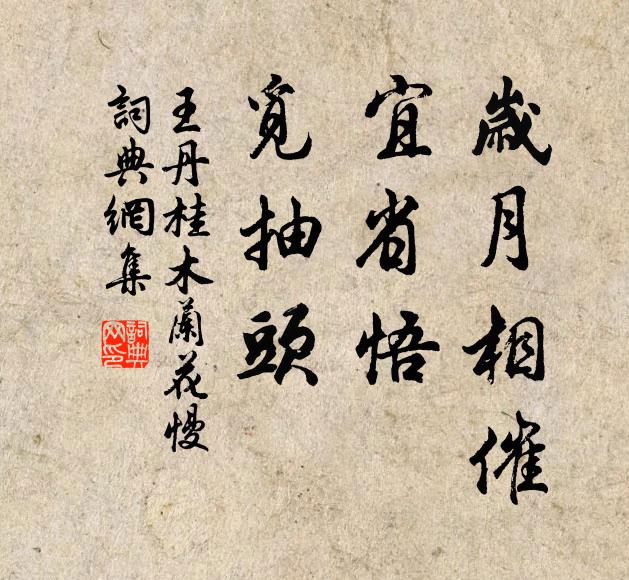 歲月相催
宜省悟
覓抽頭
王丹桂木蘭花慢
詞典網集
詞典網印